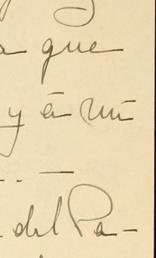 a que
y á mi
. . —
del Pa-